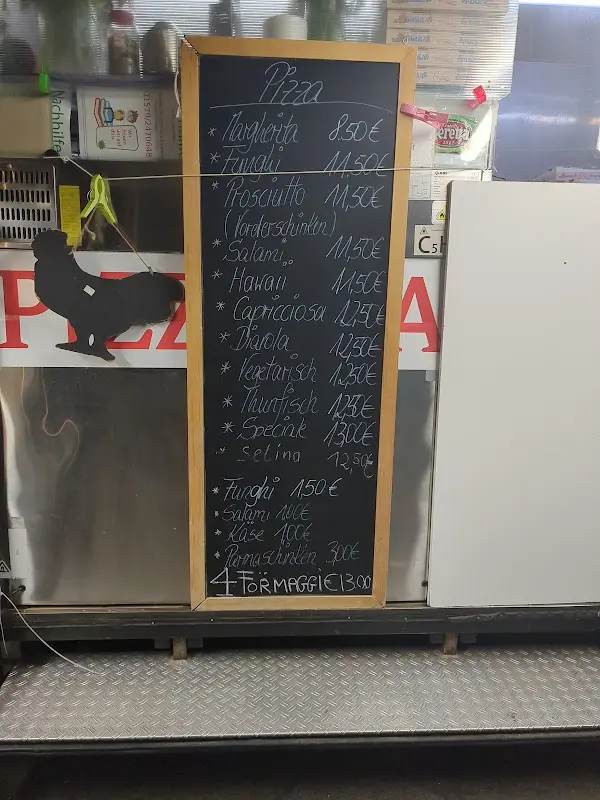 Pizza
* Margherita 8.50€
* Funghi 11.50€
* Prosciutto 11,50€
(Vorderschinken)
* Salami 11,50€
* Hawaii 11,50€
* Capricciosa 12,50€
* Diavola 12,50€
* Vegetarisch 12,50€
* Thunfisch 12,50€
* Speciale 13,00€
* Selina 12,50€
* Funghi 1,50€
* Salami 1,00€
* Käse 1,00€
* Parmaschinken 3,00€
4 FORMAGGI €13.00
Nachhilfe
01579/2470648
PIZZ
A